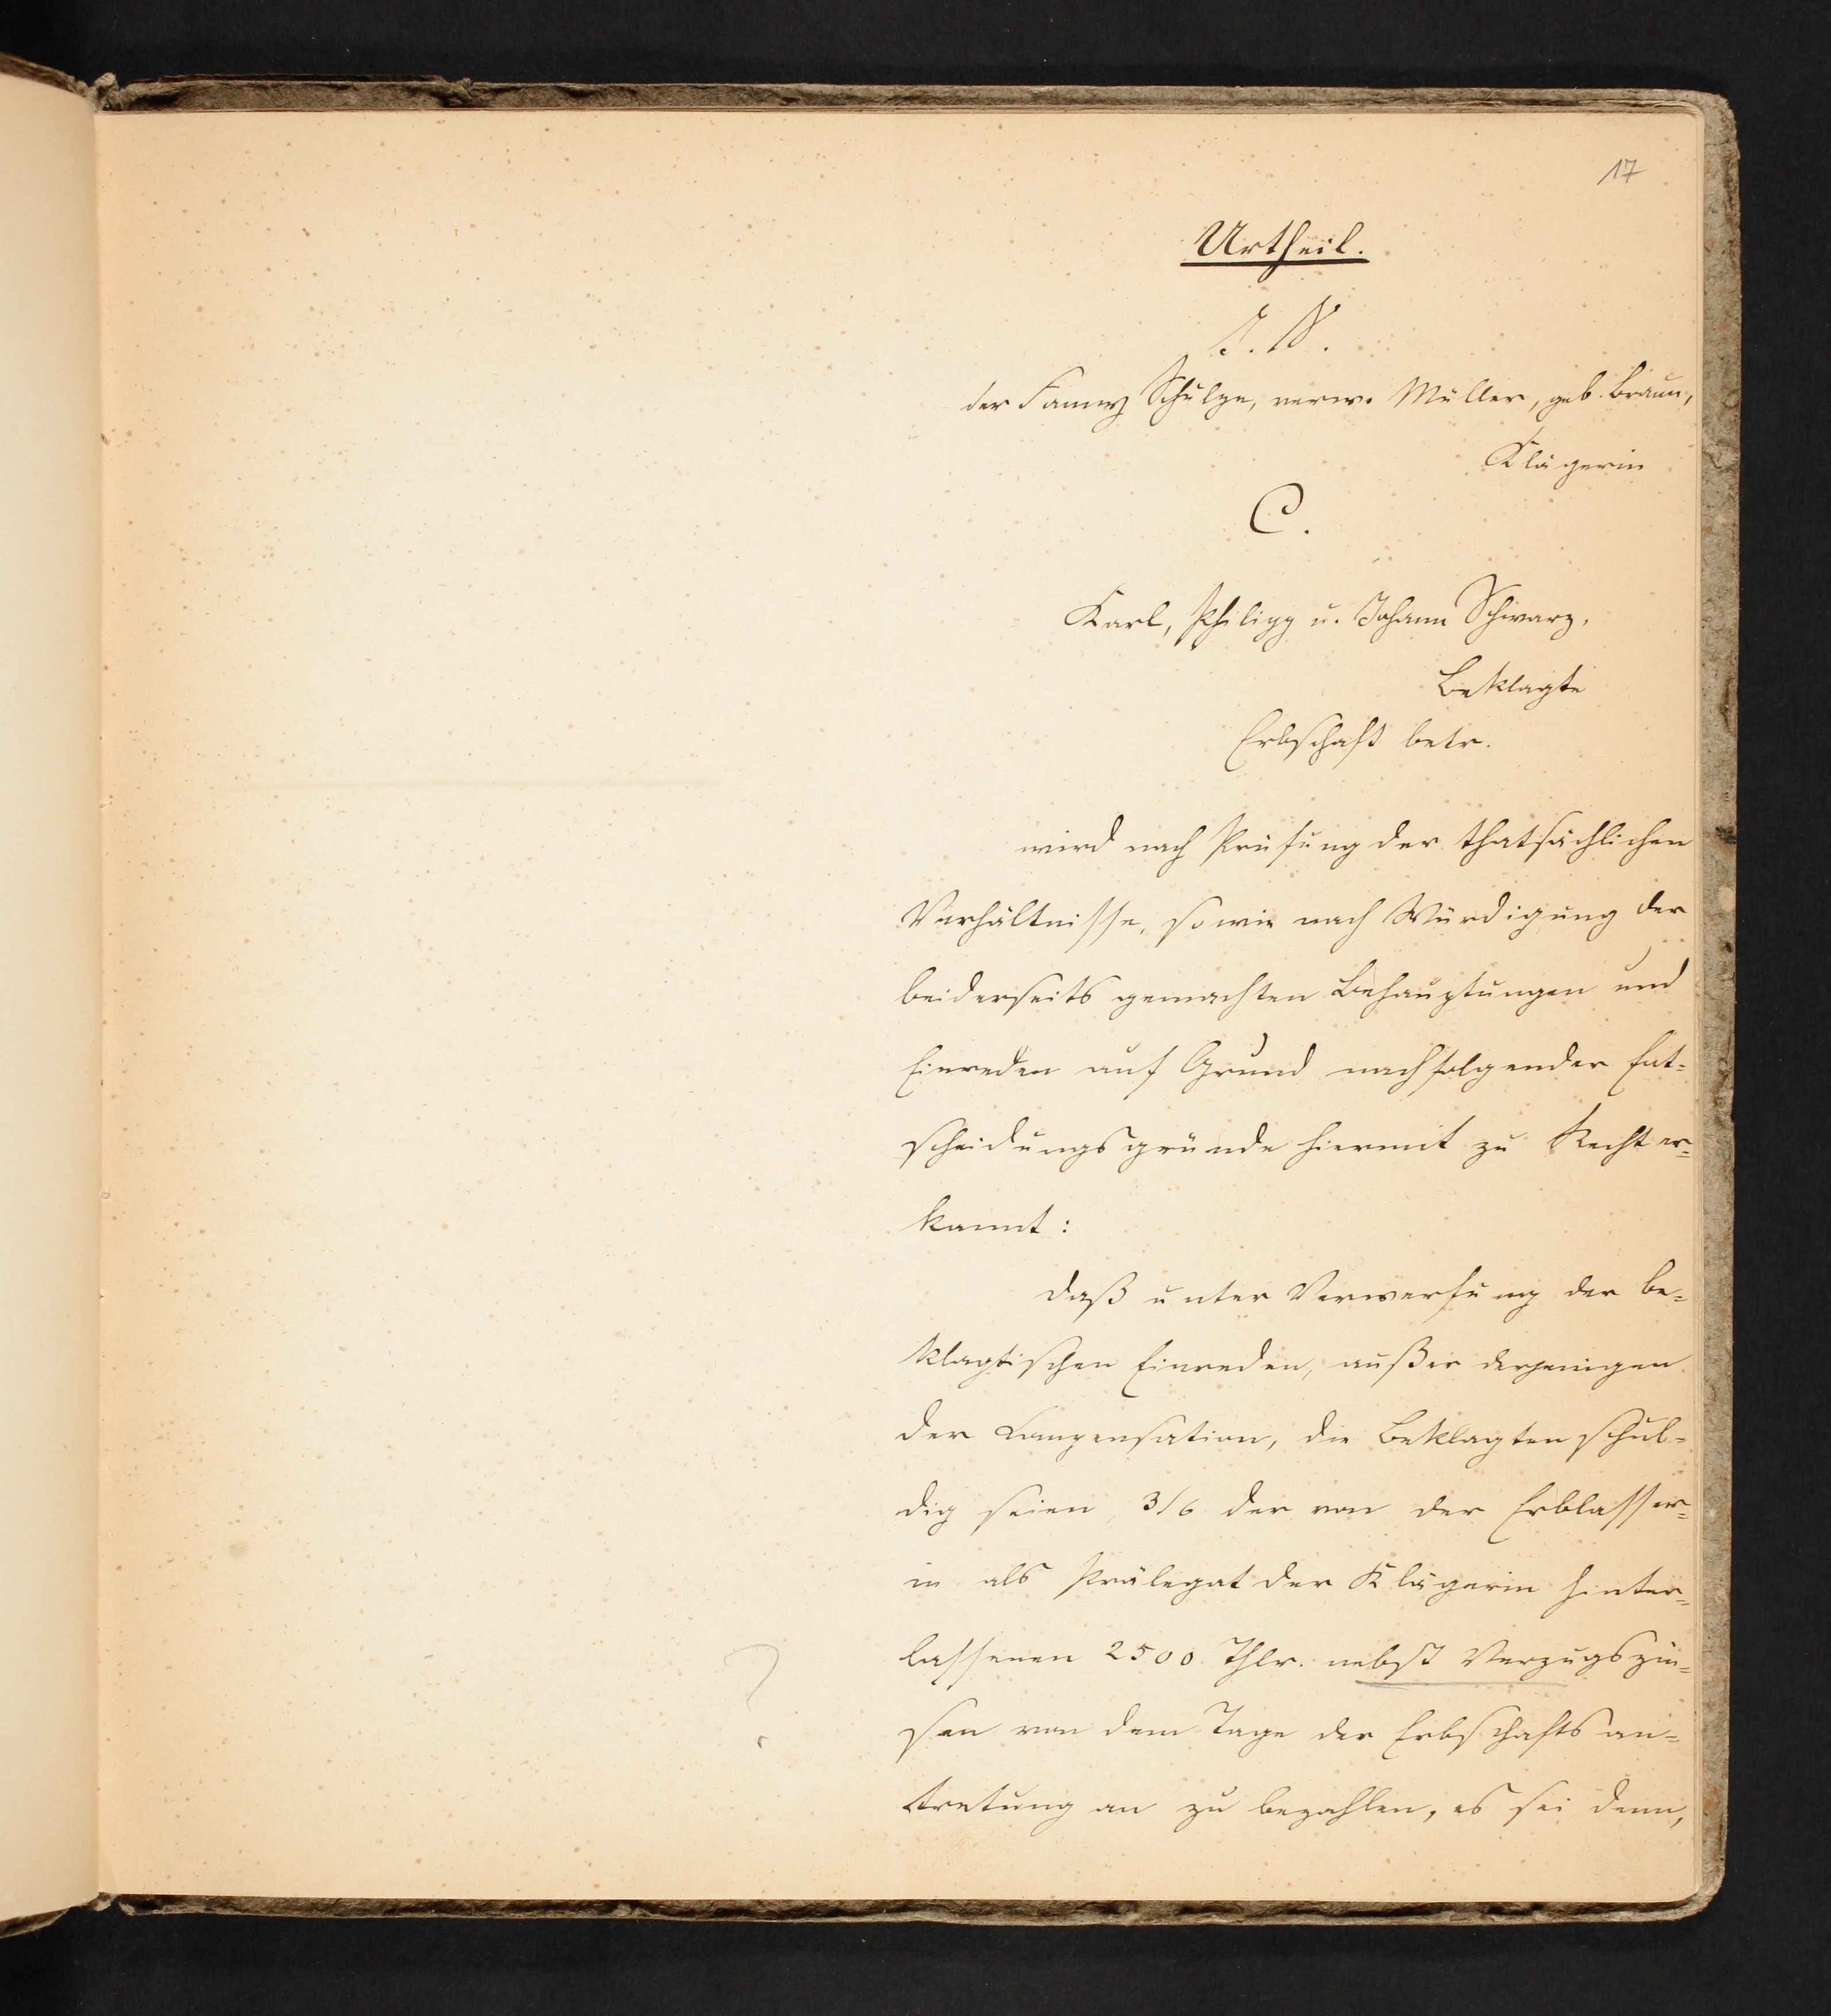 17
Urtheil.
J. S.
der Fanny Schulze, verw. Müller, geb. Braun,
Klägerin
C.
Karl, Philipp u. Johann Schwarz,
Beklagte
Erbschaft betr.
wird nach Prüfung der thatsächlichen
Verhältnisse, sowie nach Würdigung der
beiderseits gemachten Behauptungen und
Einreden auf Grund nachfolgender Ent-
scheidungsgründe hiermit zu Recht er-
kannt:
daß unter Verwerfung der be-
klagtischen Einreden, außer derjenigen
der Compensation, die Beklagten schul-
dig seien, 3/6 der von der Erblasser-
in als Prälegat der Klägerin hinter-
lassenen 2500 Thlr. nebst Verzugszin-
sen von dem Tage der Erbschaftsan-
tretung an zu bezahlen, es sei denn,
?